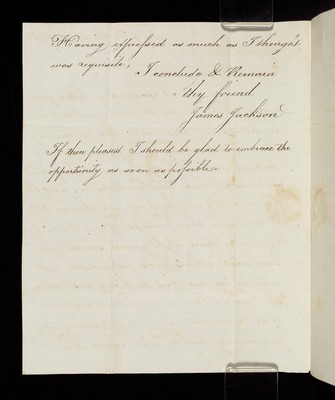 Having expressed as much as I thought
was requisite,
I conclude & Remain
thy friend
James Jackson
If thou pleased I should be glad to embrace the
opportunity as soon as possible.